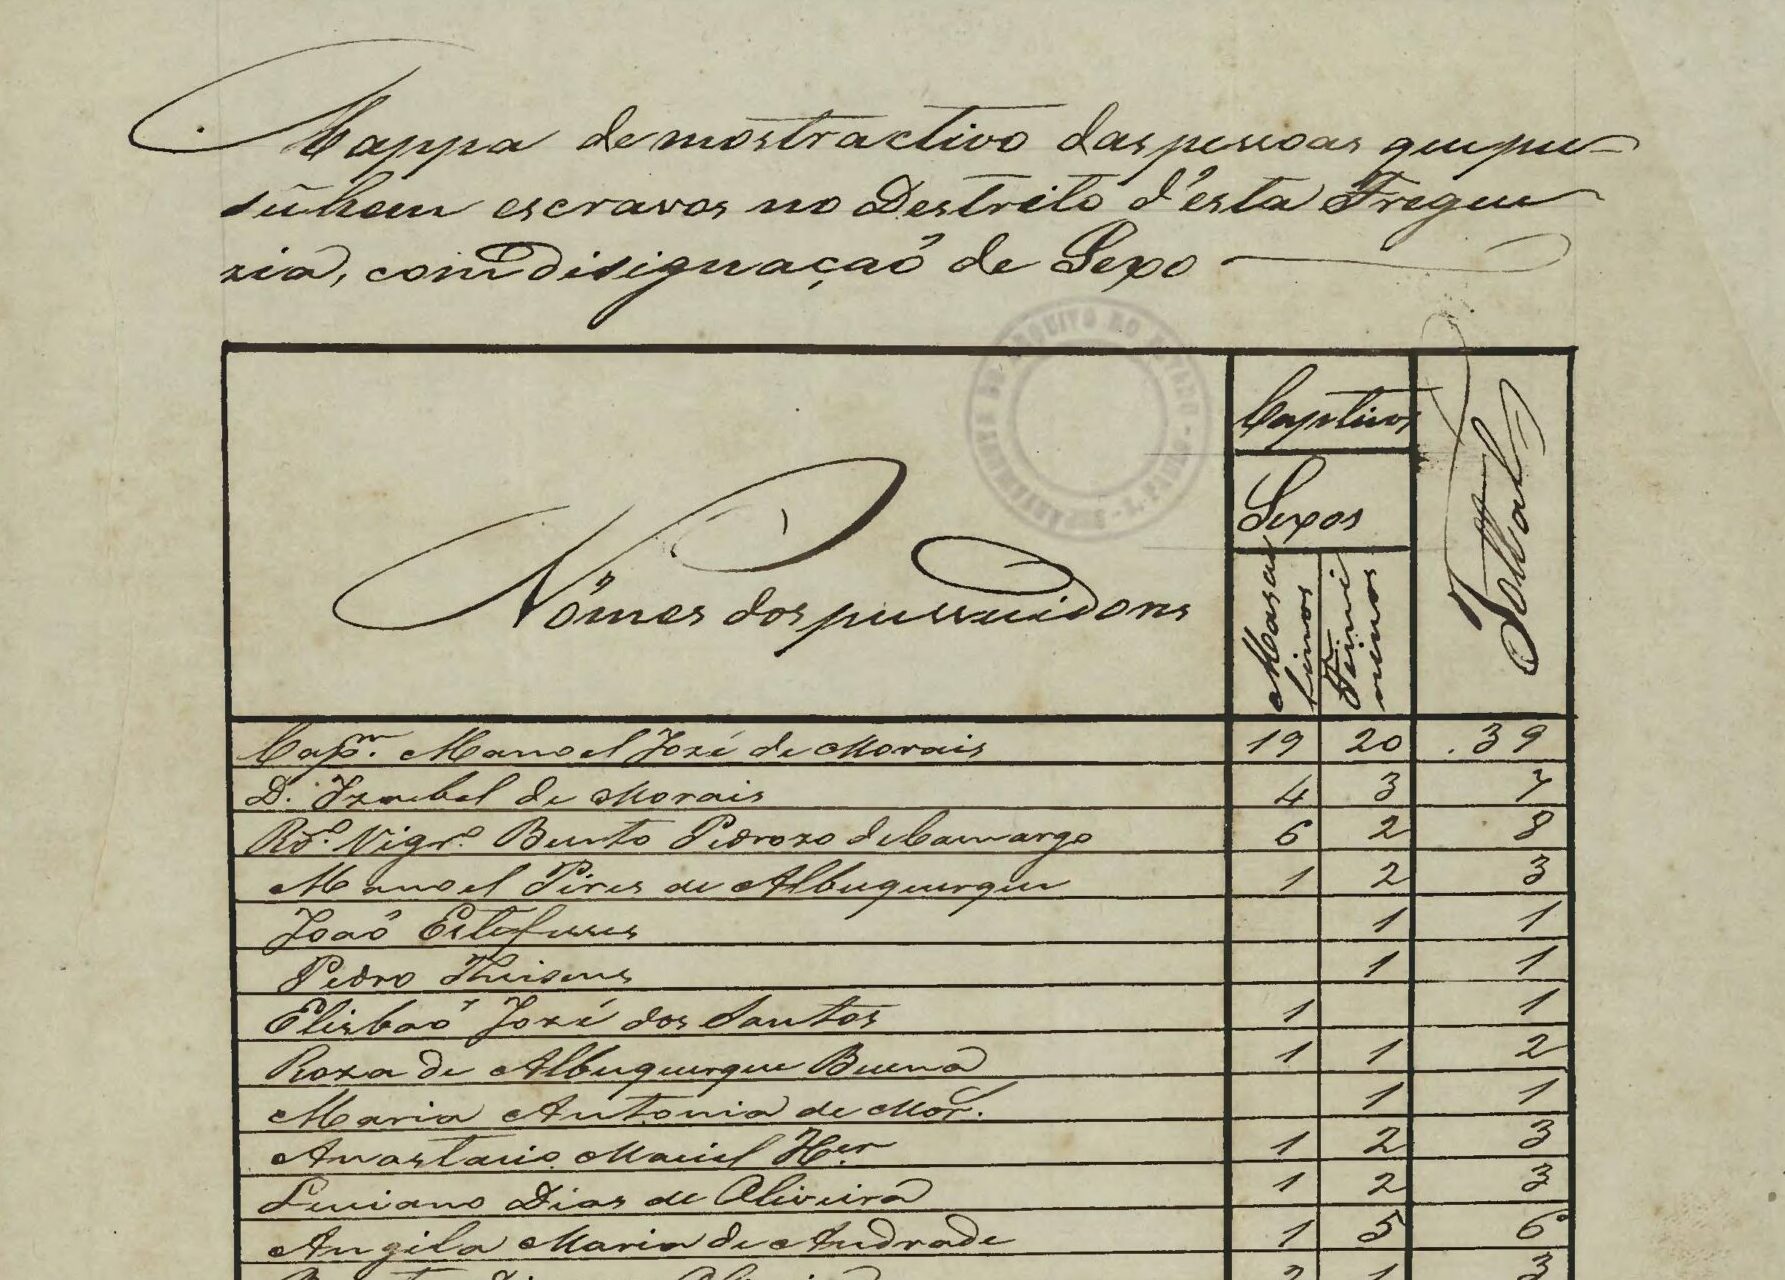 Mappa demostractivo das pessoas que pu-
sũhem escravos no Destrito d'esta Fregue
zia, com disignação de Sexo
Captivos
Sexos
Nomes dos pussuidores
Mascu
linos
Femi
ninos
Tottal
Cap.m Manoel José de Morais 19 20 39
D. Izabel de Morais 4 3 7
Rd.o Vigr.o Bento Pedrozo de Camargo 6 2 8
Manoel Pires de Albuquerque 1 2 3
João 1 1
Pedro 1 1
Elisbaõ José dos Santos 1 1
Roza de Albuquerque Buena 1 1 2
Maria Antonia de Mor. 1 1
Anastacio Maciel 1 2 3
Luciano Dias de Oliveira 1 2 3
Angila Maria de Andrade 1 5 6
2 1 3